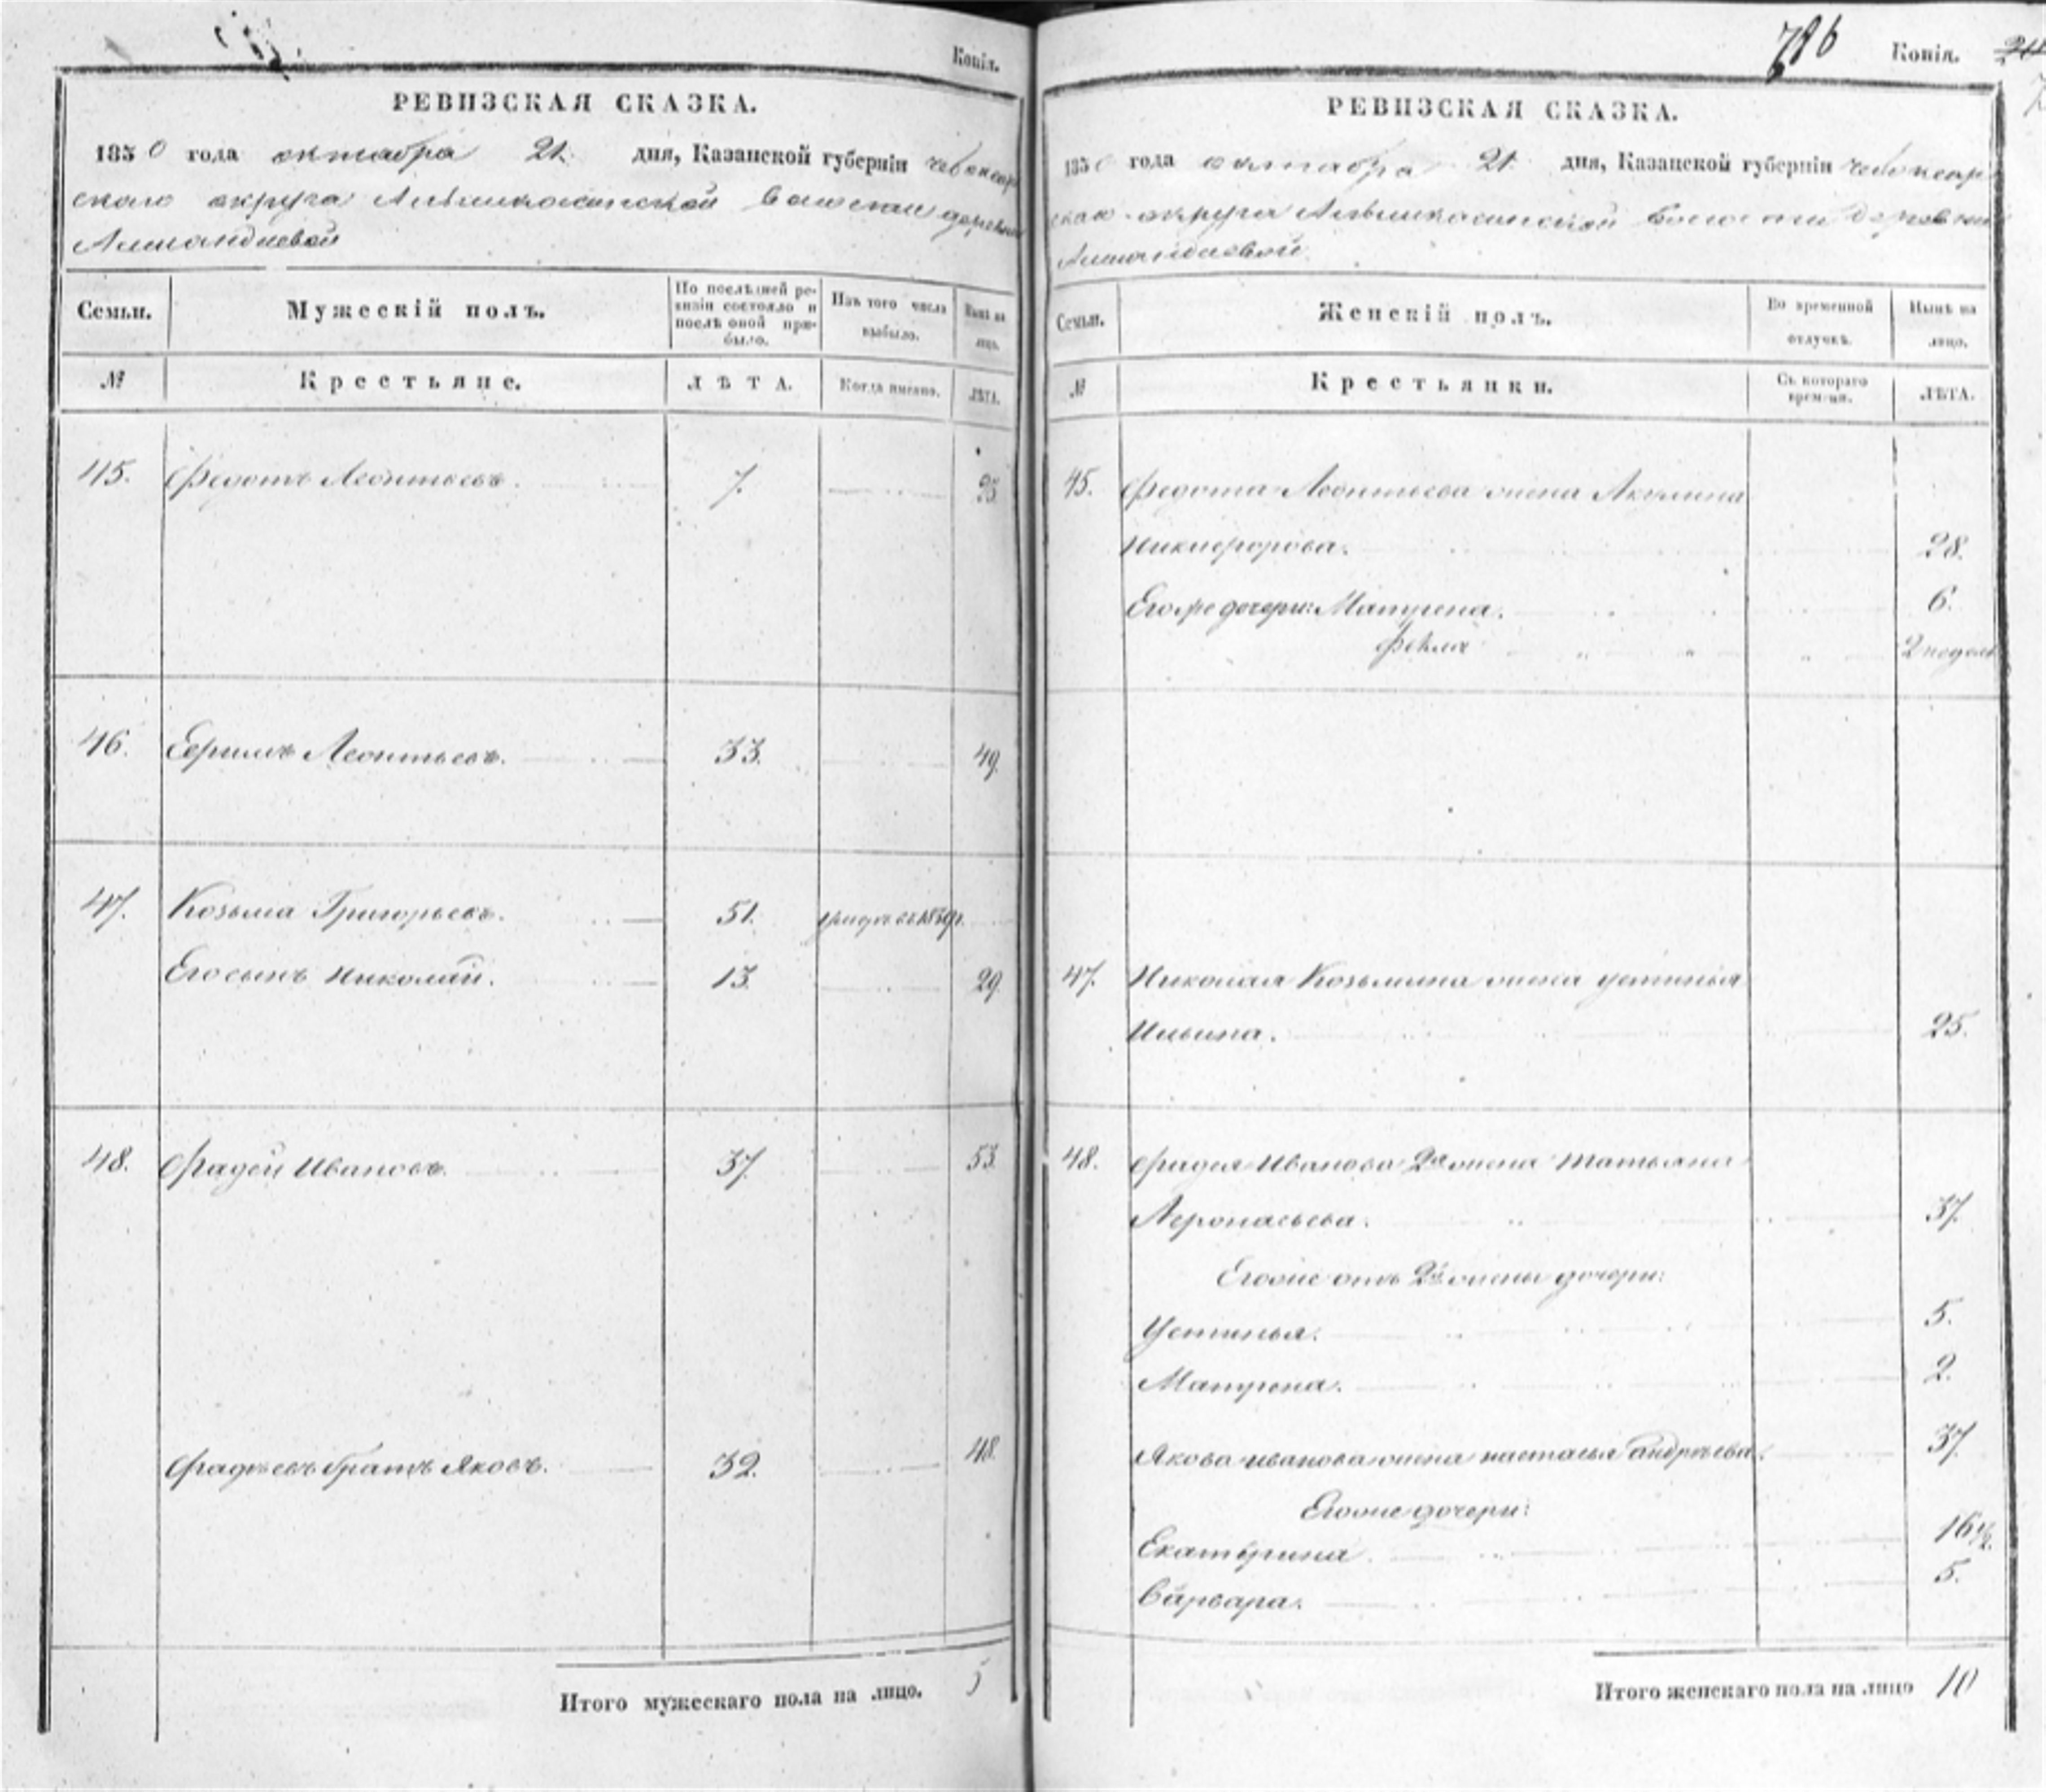 Копія.
РЕВИЗСКАЯ СКАЗКА.
1850 года октября 21 дня, Казанской губерніи Чебоксар
скаго округа Алымкасинской волости деревни
Мужескій полъ.
Семьи.
По послѣдней ре-
визіи состояло и
послѣ оной при-
было.
Изъ того числа
выбыло.
Нынѣ на
лицо.
№
Крестьяне.
ЛѢТА.
Когда именно.
ЛѢТА.
45. Федотъ Леонтьевъ. 7. 23
46. Ефимъ Леонтьевъ. 33. 49.
47. Козьма Григорьевъ. 51.
Его сынъ Николай. 13. 29
48. Фадей Ивановъ. 37. 53.
Фадѣевъ братъ Яковъ. 32. 48.
Итого мужескаго пола на лицо. 5
786 Копія.
РЕВИЗСКАЯ СКАЗКА.
1850 года октября 21 дня, Казанской губерніи Чебоксар
скаго округа Алымкасинской волости деревни
Семьи.
Женскій полъ.
Во временной
отлучкѣ.
Нынѣ на
лицо.
№
Крестьянки.
Съ котораго
времени.
ЛѢТА.
45. Федота Леонтьева жена Акулина
Никифорова. 28.
Его же дочери: Матрена. 6.
Фекла 2 недель
47. Николая Козьмина жена Устинья
Ильина. 25.
48. Фадея Иванова 2я жена Татьяна
Афонасьева. 37.
Его же отъ 2й жены дочери:
Устинья. 5.
Матрена. 2.
Якова Иванова жена Настасья Андрѣева. 37.
Его же дочери:
Екатерина. 16½
Варвара. 5.
Итого женскаго пола на лицо 10